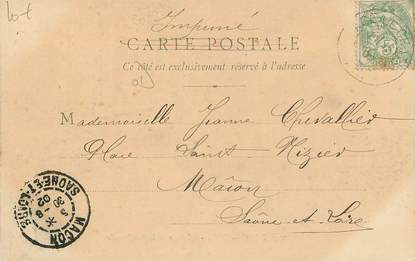 lot
Imprimé
CARTE POSTALE
Ce côté est exclusivement réservé à l'adresse
5
Mademoiselle Jeanne Chevallier
Place Saint-Nizier
Mâcon
Saône et Loire
MACON
SAONE-ET-LOIRE